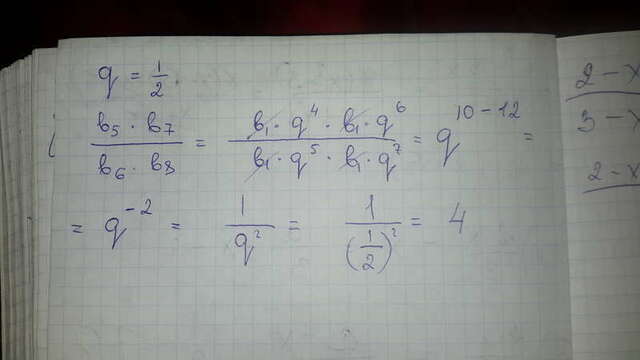 q = 1/2
b₅ · b₇ / b₆ · b₈ = b₁ · q⁴ · b₁ · q⁶ / b₁ · q⁵ · b₁ · q⁷ = q¹⁰⁻¹² =
= q⁻² = 1/q² = 1/(1/2)² = 4
2 - x
3 - x
2 - x